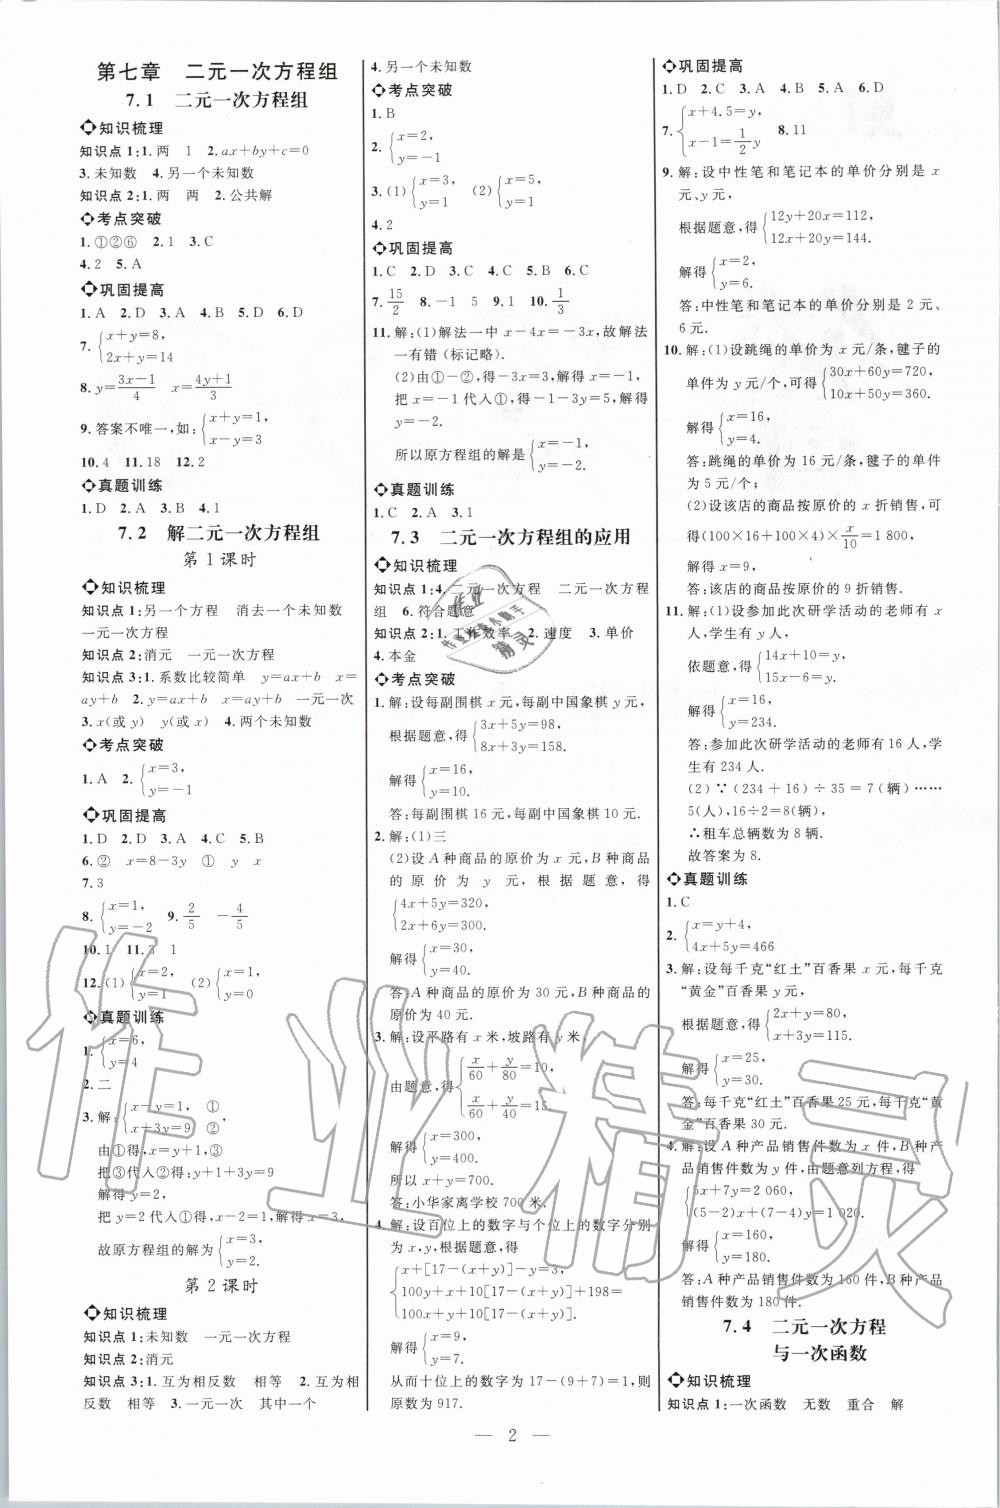 第七章　二元一次方程组
7.1　二元一次方程组
知识梳理
知识点 1:1. 两　1　2. ax+by+c=0
3. 未知数　4. 另一个未知数
知识点 2:1. 两　两　2. 公共解
考点突破
1. ①②⑥　2. 1　3. C
4. 2　5. A
巩固提高
1. A　2. D　3. A　4. B　5. D　6. D
7. {x+y=8,
2x+y=14
8. y=(3x-1)/4　x=(4y+1)/3
9. 答案不唯一,如:{x+y=1,
x-y=3
10. 4　11. 18　12. 2
真题训练
1. D　2. A　3. B　4. 1
7.2　解二元一次方程组
第 1 课时
知识梳理
知识点 1:另一个方程　消去一个未知数
一元一次方程
知识点 2:消元　一元一次方程
知识点 3:1. 系数比较简单　y=ax+b　x=
ay+b　2. y=ax+b　x=ay+b　一元一次
3. x(或 y)　y(或 x)　4. 两个未知数
考点突破
1. A　2. {x=3,
y=-1
巩固提高
1. D　2. D　3. A　4. C　5. B
6. ②　x=8-3y　①　y　x
7. 3
8. {x=1,
y=-2　9. 2/5　-4/5
10. 1　11. 3　1
12. (1){x=2,
y=1　(2){x=1,
y=0
真题训练
1. {x=6,
y=4
2. 二
3. 解:{x-y=1,　①
x+3y=9　②
由①得,x=y+1,③
把③代入②得:y+1+3y=9
解得 y=2,
把 y=2 代入①得,x-2=1,解得 x=3,
故原方程组的解为{x=3,
y=2.
第 2 课时
知识梳理
知识点 1:未知数　一元一次方程
知识点 2:消元
知识点 3:1. 互为相反数　相等　2. 互为相
反数　相等　3. 一元一次　其中一个
4. 另一个未知数
考点突破
1. B
2. {x=2,
y=-1
3. (1){x=3,
y=1　(2){x=5,
y=1
4. 2
巩固提高
1. C　2. D　3. C　4. C　5. B　6. C
7. 15/2　8. -1　5　9. 1　10. 1/3
11. 解:(1)解法一中 x-4x=-3x,故解法
一有错(标记略).
(2)由①-②,得-3x=3,解得 x=-1,
把 x=-1 代入①,得-1-3y=5,解得
y=-2.
所以原方程组的解是{x=-1,
y=-2.
真题训练
1. C　2. A　3. 1
7.3　二元一次方程组的应用
知识梳理
知识点 1:4. 二元一次方程　二元一次方程
组　6. 符合题意
知识点 2:1. 工作效率　2. 速度　3. 单价
4. 本金
考点突破
1. 解:设每副围棋 x 元,每副中国象棋 y 元,
根据题意,得{3x+5y=98,
8x+3y=158.
解得{x=16,
y=10.
答:每副围棋 16 元,每副中国象棋 10 元.
2. 解:(1)三
(2)设 A 种商品的原价为 x 元,B 种商品
的原价为 y 元,根据题意,得
{4x+5y=320,
2x+6y=300.
解得{x=30,
y=40.
答:A 种商品的原价为 30 元,B 种商品的
原价为 40 元.
3. 解:设平路有 x 米,坡路有 y 米,
由题意,得{x/60+y/80=10,
x/60+y/40=15.
解得{x=300,
y=400.
所以 x+y=700.
答:小华家离学校 700 米.
4. 解:设百位上的数字与个位上的数字分别
为 x,y,根据题意,得
{x+[17-(x+y)]=y,
100y+x+10[17-(x+y)]+198=
100x+y+10[17-(x+y)].
解得{x=9,
y=7.
从而十位上的数字为 17-(9+7)=1,则
原数为 917.
巩固提高
1. D　2. C　3. A　4. B　5. A　6. D
7. {x+4.5=y,
x-1=1/2y　8. 11
9. 解:设中性笔和笔记本的单价分别是 x
元、y 元,
根据题意,得{12y+20x=112,
12x+20y=144.
解得{x=2,
y=6.
答:中性笔和笔记本的单价分别是 2 元、
6 元.
10. 解:(1)设跳绳的单价为 x 元/条,毽子的
单件为 y 元/个,可得{30x+60y=720,
10x+50y=360.
解得{x=16,
y=4.
答:跳绳的单价为 16 元/条,毽子的单件
为 5 元/个;
(2)设该店的商品按原价的 x 折销售,可
得(100×16+100×4)×x/10=1800,
解得 x=9,
答:该店的商品按原价的 9 折销售.
11. 解:(1)设参加此次研学活动的老师有 x
人,学生有 y 人,
依题意,得{14x+10=y,
15x-6=y.
解得{x=16,
y=234.
答:参加此次研学活动的老师有 16 人,学
生有 234 人.
(2)∵(234+16)÷35=7(辆)……
5(人),16÷2=8(辆),
∴租车总辆数为 8 辆.
故答案为 8.
真题训练
1. C
2. {x=y+4,
4x+5y=466
3. 解:设每千克“红土”百香果 x 元,每千克
“黄金”百香果 y 元,
由题意,得{2x+y=80,
x+3y=115.
解得{x=25,
y=30.
答:每千克“红土”百香果 25 元,每千克“黄
金”百香果 30 元.
4. 解:设 A 种产品销售件数为 x 件,B 种产
品销售件数为 y 件,由题意列方程,得
{5x+7y=2 060,
(5-2)x+(7-4)y=1 020.
解得{x=160,
y=180.
答:A 种产品销售件数为 160 件,B 种产品
销售件数为 180 件.
7.4　二元一次方程
与一次函数
知识梳理
知识点 1:一次函数　无数　重合　解
— 2 —
作业精灵